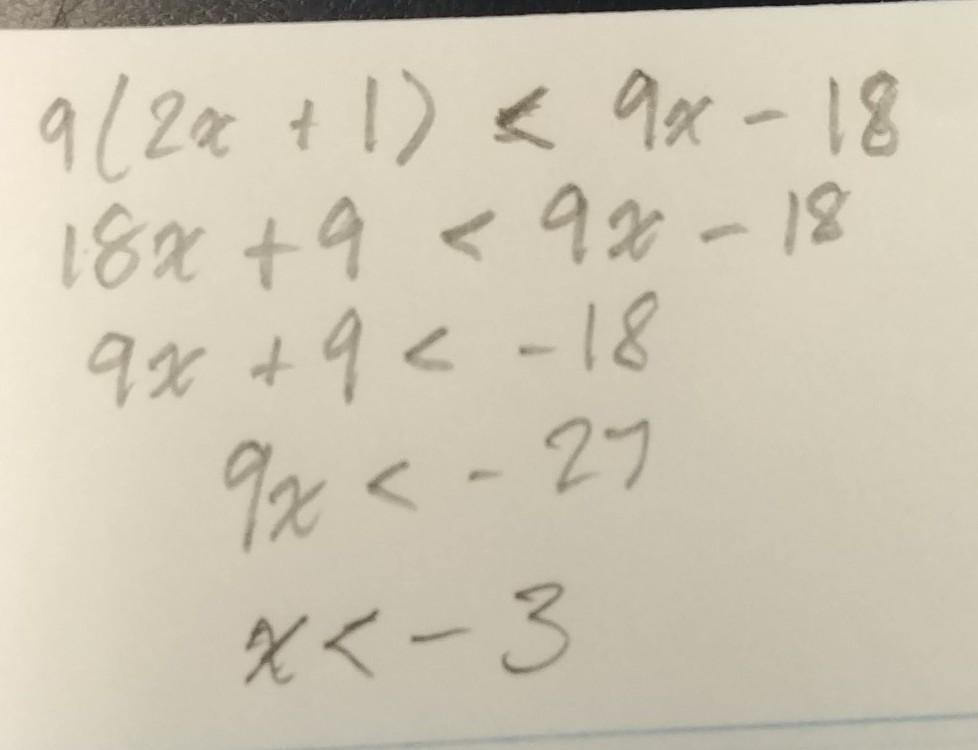 9(2x + 1) < 9x - 18
18x + 9 < 9x - 18
9x + 9 < -18
9x < - 27
x < - 3